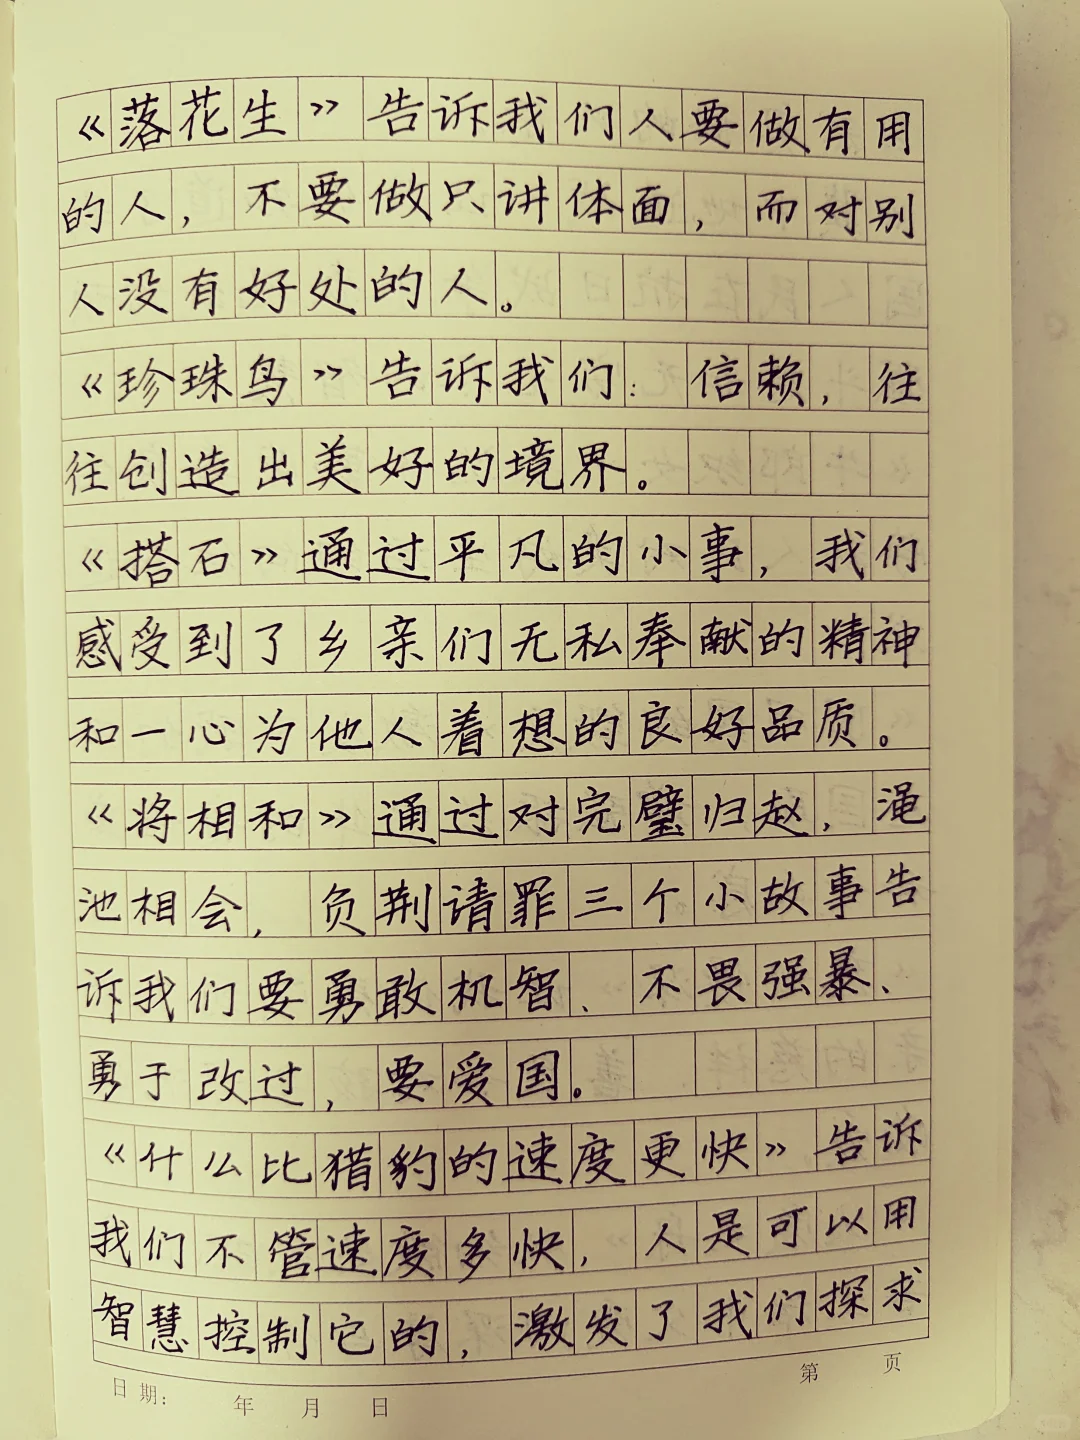 《落花生》告诉我们人要做有用
的人，不要做只讲体面，而对别
人没有好处的人。
《珍珠鸟》告诉我们：信赖，往
往创造出美好的境界。
《搭石》通过平凡的小事，我们
感受到了乡亲们无私奉献的精神
和一心为他人着想的良好品质。
《将相和》通过对完璧归赵，渑
池相会，负荆请罪三个小故事告
诉我们要勇敢机智、不畏强暴、
勇于改过，要爱国。
《什么比猎豹的速度更快》告诉
我们不管速度多快，人是可以用
智慧控制它的，激发了我们探求
日期： 年 月 日 第 页